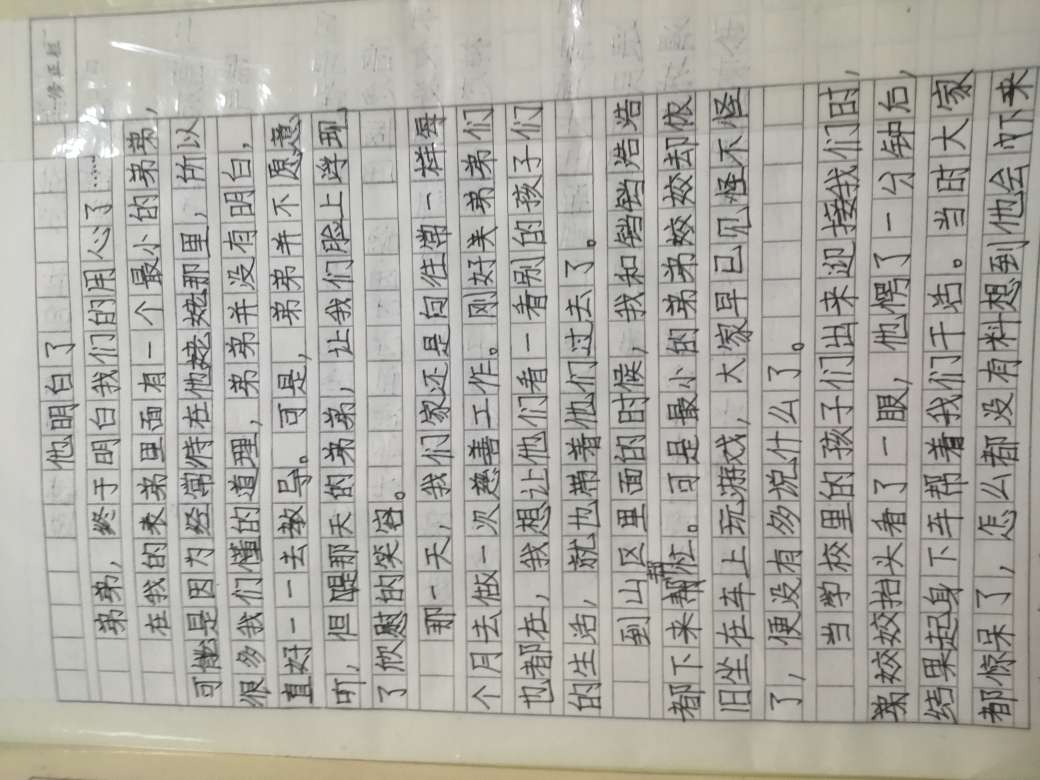 他明白了
弟弟，终于明白我们的用心了……
在我的表弟里面有一个最小的弟弟，
可能是因为经常待在他姥姥那里，所以
很多我们懂的道理，弟弟并没有明白，
直好一一去教导。可是，弟弟并不愿意
听，但是那天的弟弟，让我们脸上浮现
了欣慰的笑容。
那一天，我们家还是向往常一样每
个月去做一次慈善工作。刚好关弟弟们
也都在，我想让他们看一看别的孩子们
的生活，就也带着他们过去了。
到山区里面的时候，我和铛铛浩浩
都下来帮忙。可是最小的弟弟姣姣却依
旧坐在车上玩游戏，大家早已见怪不怪
了，便没有多说什么了。
当学校里的孩子们出来迎接我们时，
弟姣姣抬头看了一眼，他愣了一分钟后，
结果起身下车帮着我们干活。当时大家
都惊呆了，怎么都没有料想到他会下来